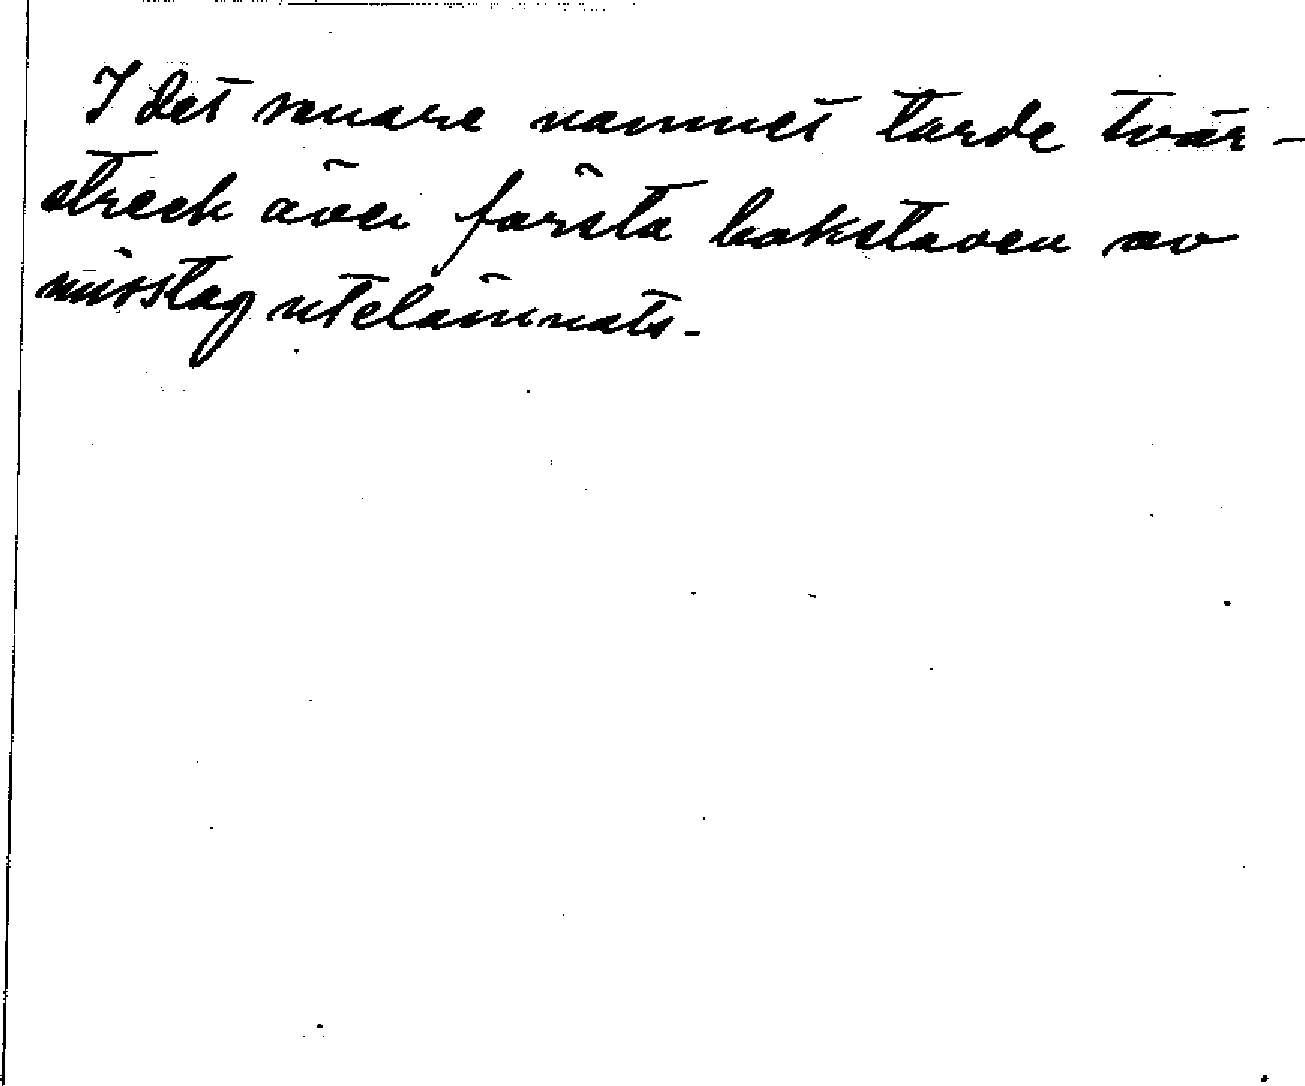 I det senare namnet torde tvär-
streck över första bokstaven av
misstag utelämnats.